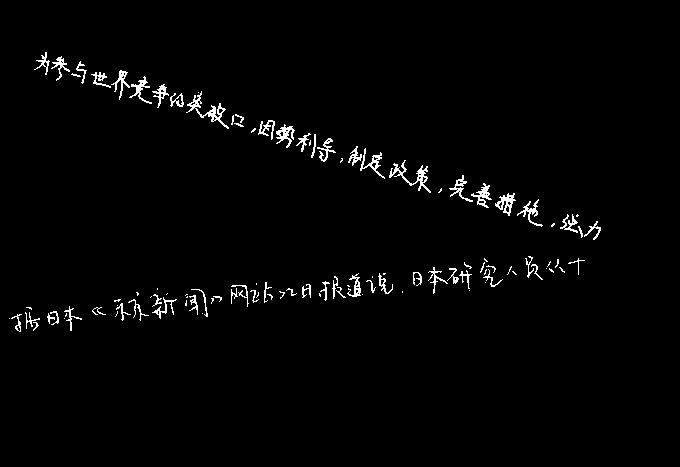 为参与世界竞争的突破口,因势利导,制定政策,完善措施,全力
据日本《东京新闻》网站22日报道说,日本研究人员从十